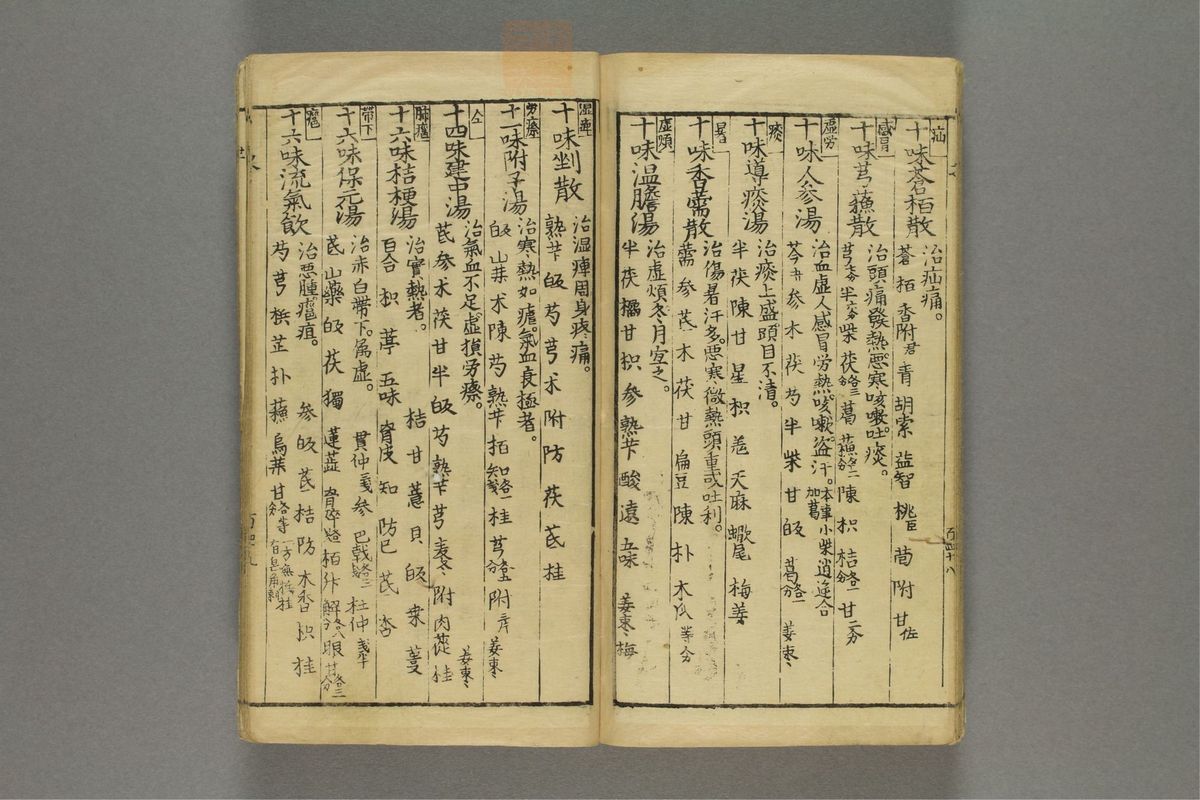 疝
十味蒼栢散
治疝痛。
蒼 栢 香附君 青 胡索 益智 桃臣 茴 附 甘佐
感冒
十味芎蘓散
治頭痛發熱。惡寒咳嗽。吐痰。
半 柴 茯 葛 蘓 陳 枳 桔 甘
虛労
十味人参湯
治血虛人感冒労熱。咳嗽盗汗。本事小柴逍遥合加葛
芩 参 朮 茯 芍 半 柴 甘 皈 葛 姜枣
痰
十味導痰湯
治痰上盛頭目不清。
半 茯 陳 甘 星 枳 羗 天麻 蠍尾 梅 姜
暑
十味香薷散
治傷暑汗多。惡寒微熱頭重或吐利。
薷 参 芪 朮 茯 甘 扁豆 陳 朴 木瓜 等分
虛煩
十味温膽湯
治虛煩。冬月宜之。
半 茯 橘 甘 枳 参 熟芐 酸 遠 五味 姜枣梅
湿痺
十味剉散
治湿痺周身疼痛。
熟芐 皈 芍 芎 朮 附 防 茯 芪 桂
労瘵
十一味附子湯
治寒熱如瘧。氣血衰極者。
皈 朮 陳 芍 熟芐 桂 附 姜枣
仝
十四味建中湯
治氣血不足。虛損労瘵。
芪 参 朮 茯 甘 半 皈 芍 熟芐 芎 麦冬 附 肉蓯 桂 姜枣
肺癰
十六味桔梗湯
治實熱者。 桔 甘 薏 貝 皈 桒 蔞
百合 枳 葶 五味 知 防已 芪 杏
帶下
十六味保元湯
治赤白帶下。属虛。 貫仲 参 巴戟 杜仲
芪 山藥 皈 茯 獨 蓮蕋 栢 眼
癰
十六味流氣飲
治惡腫癰疽。 参 皈 芪 桔 防 木香 枳 桂
芍 芎 梹 芷 朴 蘓 烏葉 甘 一方無桂